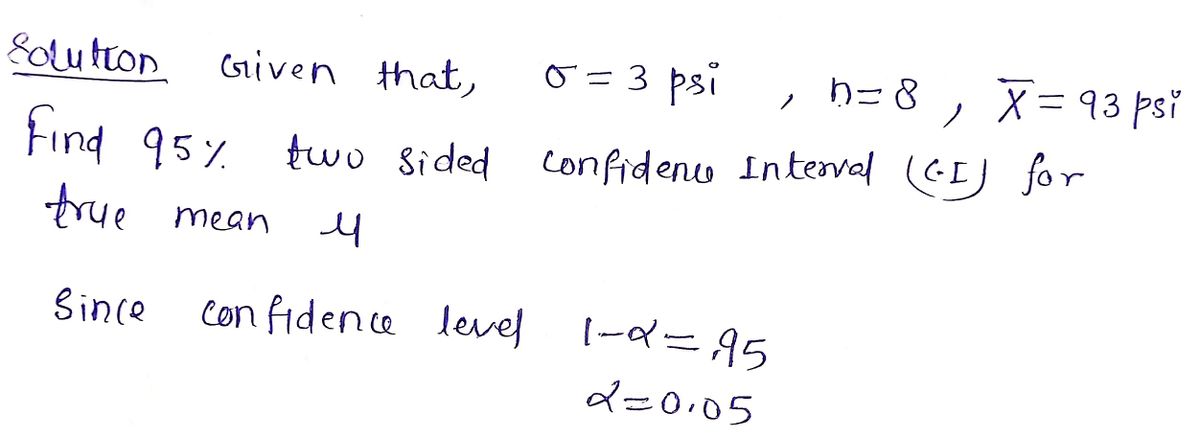 Solution Given that, σ = 3 psi , n=8 , X̅ = 93 psi
Find 95% two sided confidence Interval (C.I) for
true mean μ
Since confidence level 1-α = .95
α=0.05